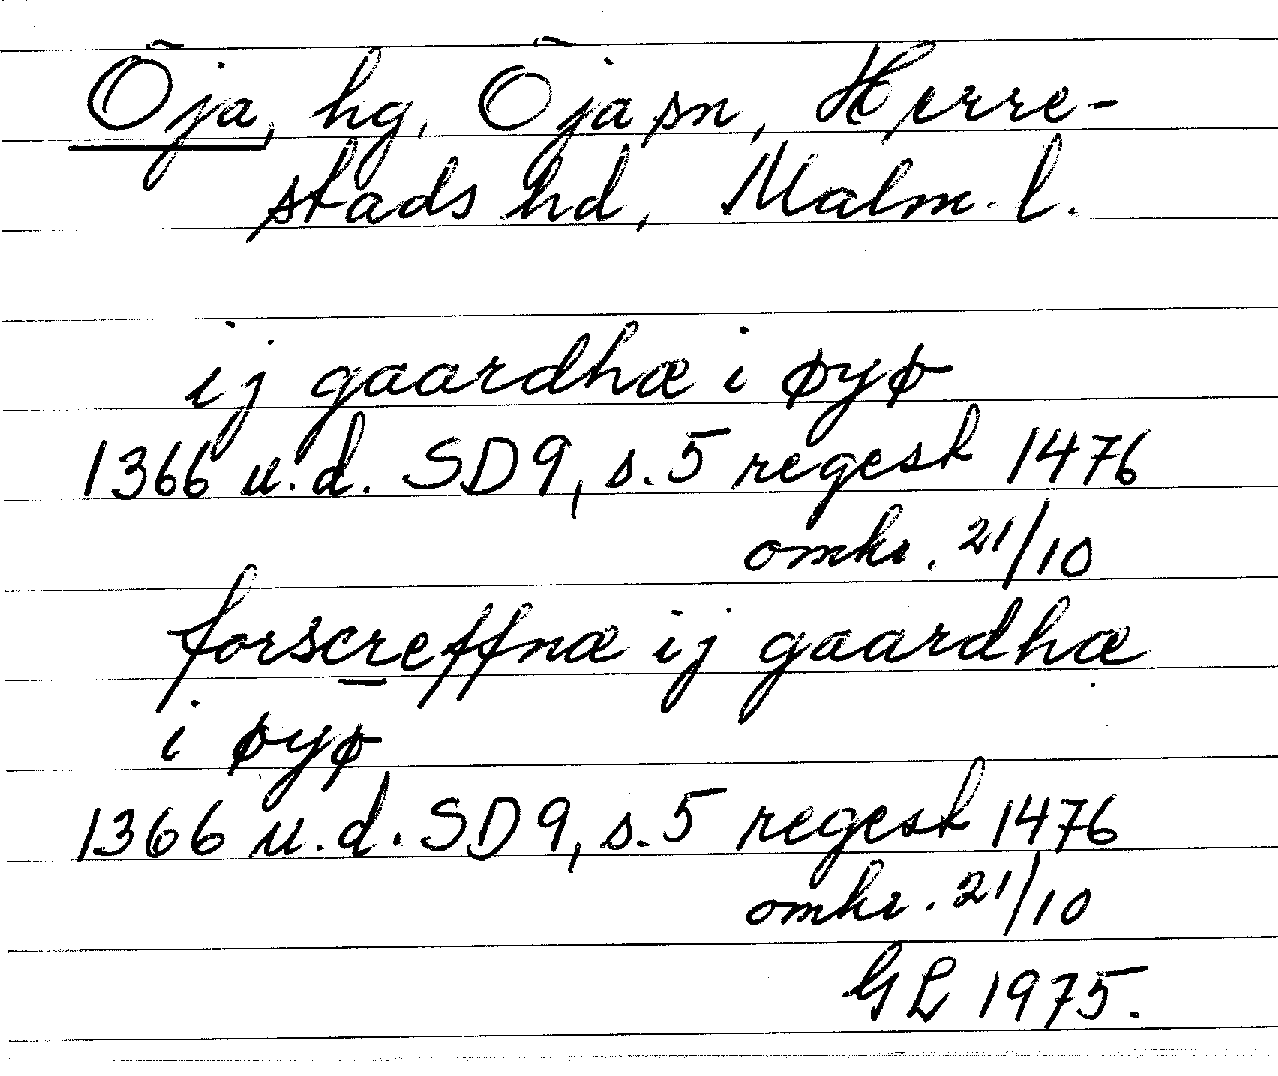 Öja, hg, Öja sn, Herre-
stads hd, Malm. l.
ij gaardhæ i øyø
1366 u.d. SD9, s.5 regest 1476
omkr. 21/10
forscreffnæ ij gaardhæ
i øyø
1366 u.d. SD9, s.5 regest 1476
omkr. 21/10
GL 1975.